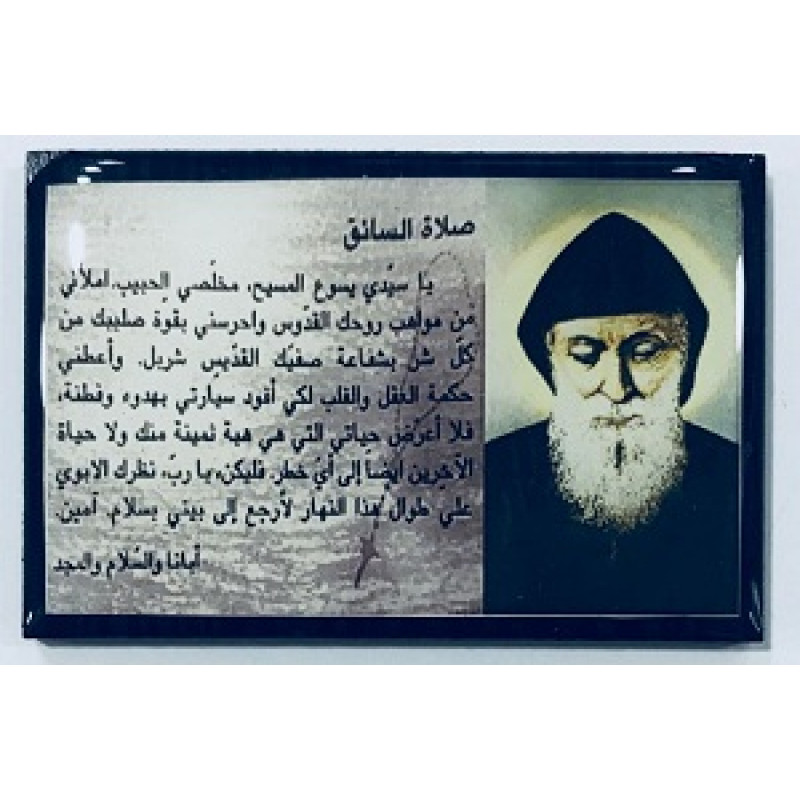 صلاة السائق
يا سيّدي يسوع المسيح، مخلّصي الحبيب، املأني
من مواهب روحك القدّوس واحرسني بقوة صليبك من
كلّ شر بشفاعة صفيّك القدّيس شربل. وأعطني
حكمة العقل والقلب لكي أقود سيارتي بهدوء وفطنة،
فلا أعرّض حياتي التي هي هبة ثمينة منك ولا حياة
الآخرين ايضاً إلى أيّ خطر. فليكن، يا ربّ، نظرك الابوي
علي طوال هذا النهار لأرجع إلى بيتي بسلام. آمين.
أبانا والسّلام والمجد